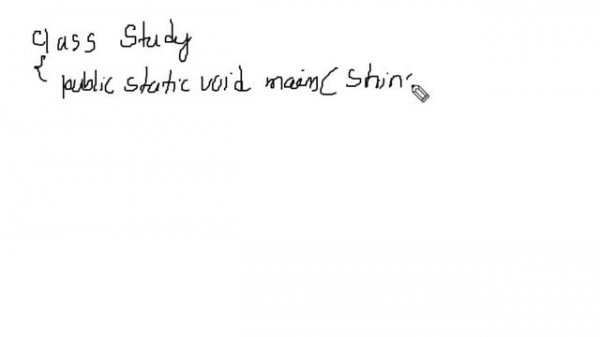 class Study
{
public static void main( Strin